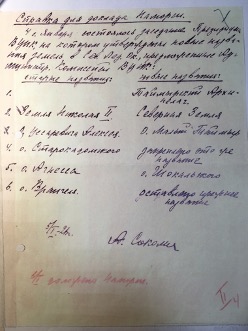 Справка для доклада Наморси.
4 января состоялось заседание Президиума
ВЦИК на котором утверждены новые назва-
ния земель, в Сев. Лед. Ок., предложенные
Комиссией ВЦИК:
старые названия: новые названия:
1. Таймырский Архи-
пелаг.
2. Земля Николая II. Северная Земля
3. Цесаревича Алексея. о. Малый Таймыр
4. о. Старокадомского
название
5. о. Алексея о. Шокальского
6. о. Врангеля. оставлено прежнее
название
5/I-26г.
А. Соколов